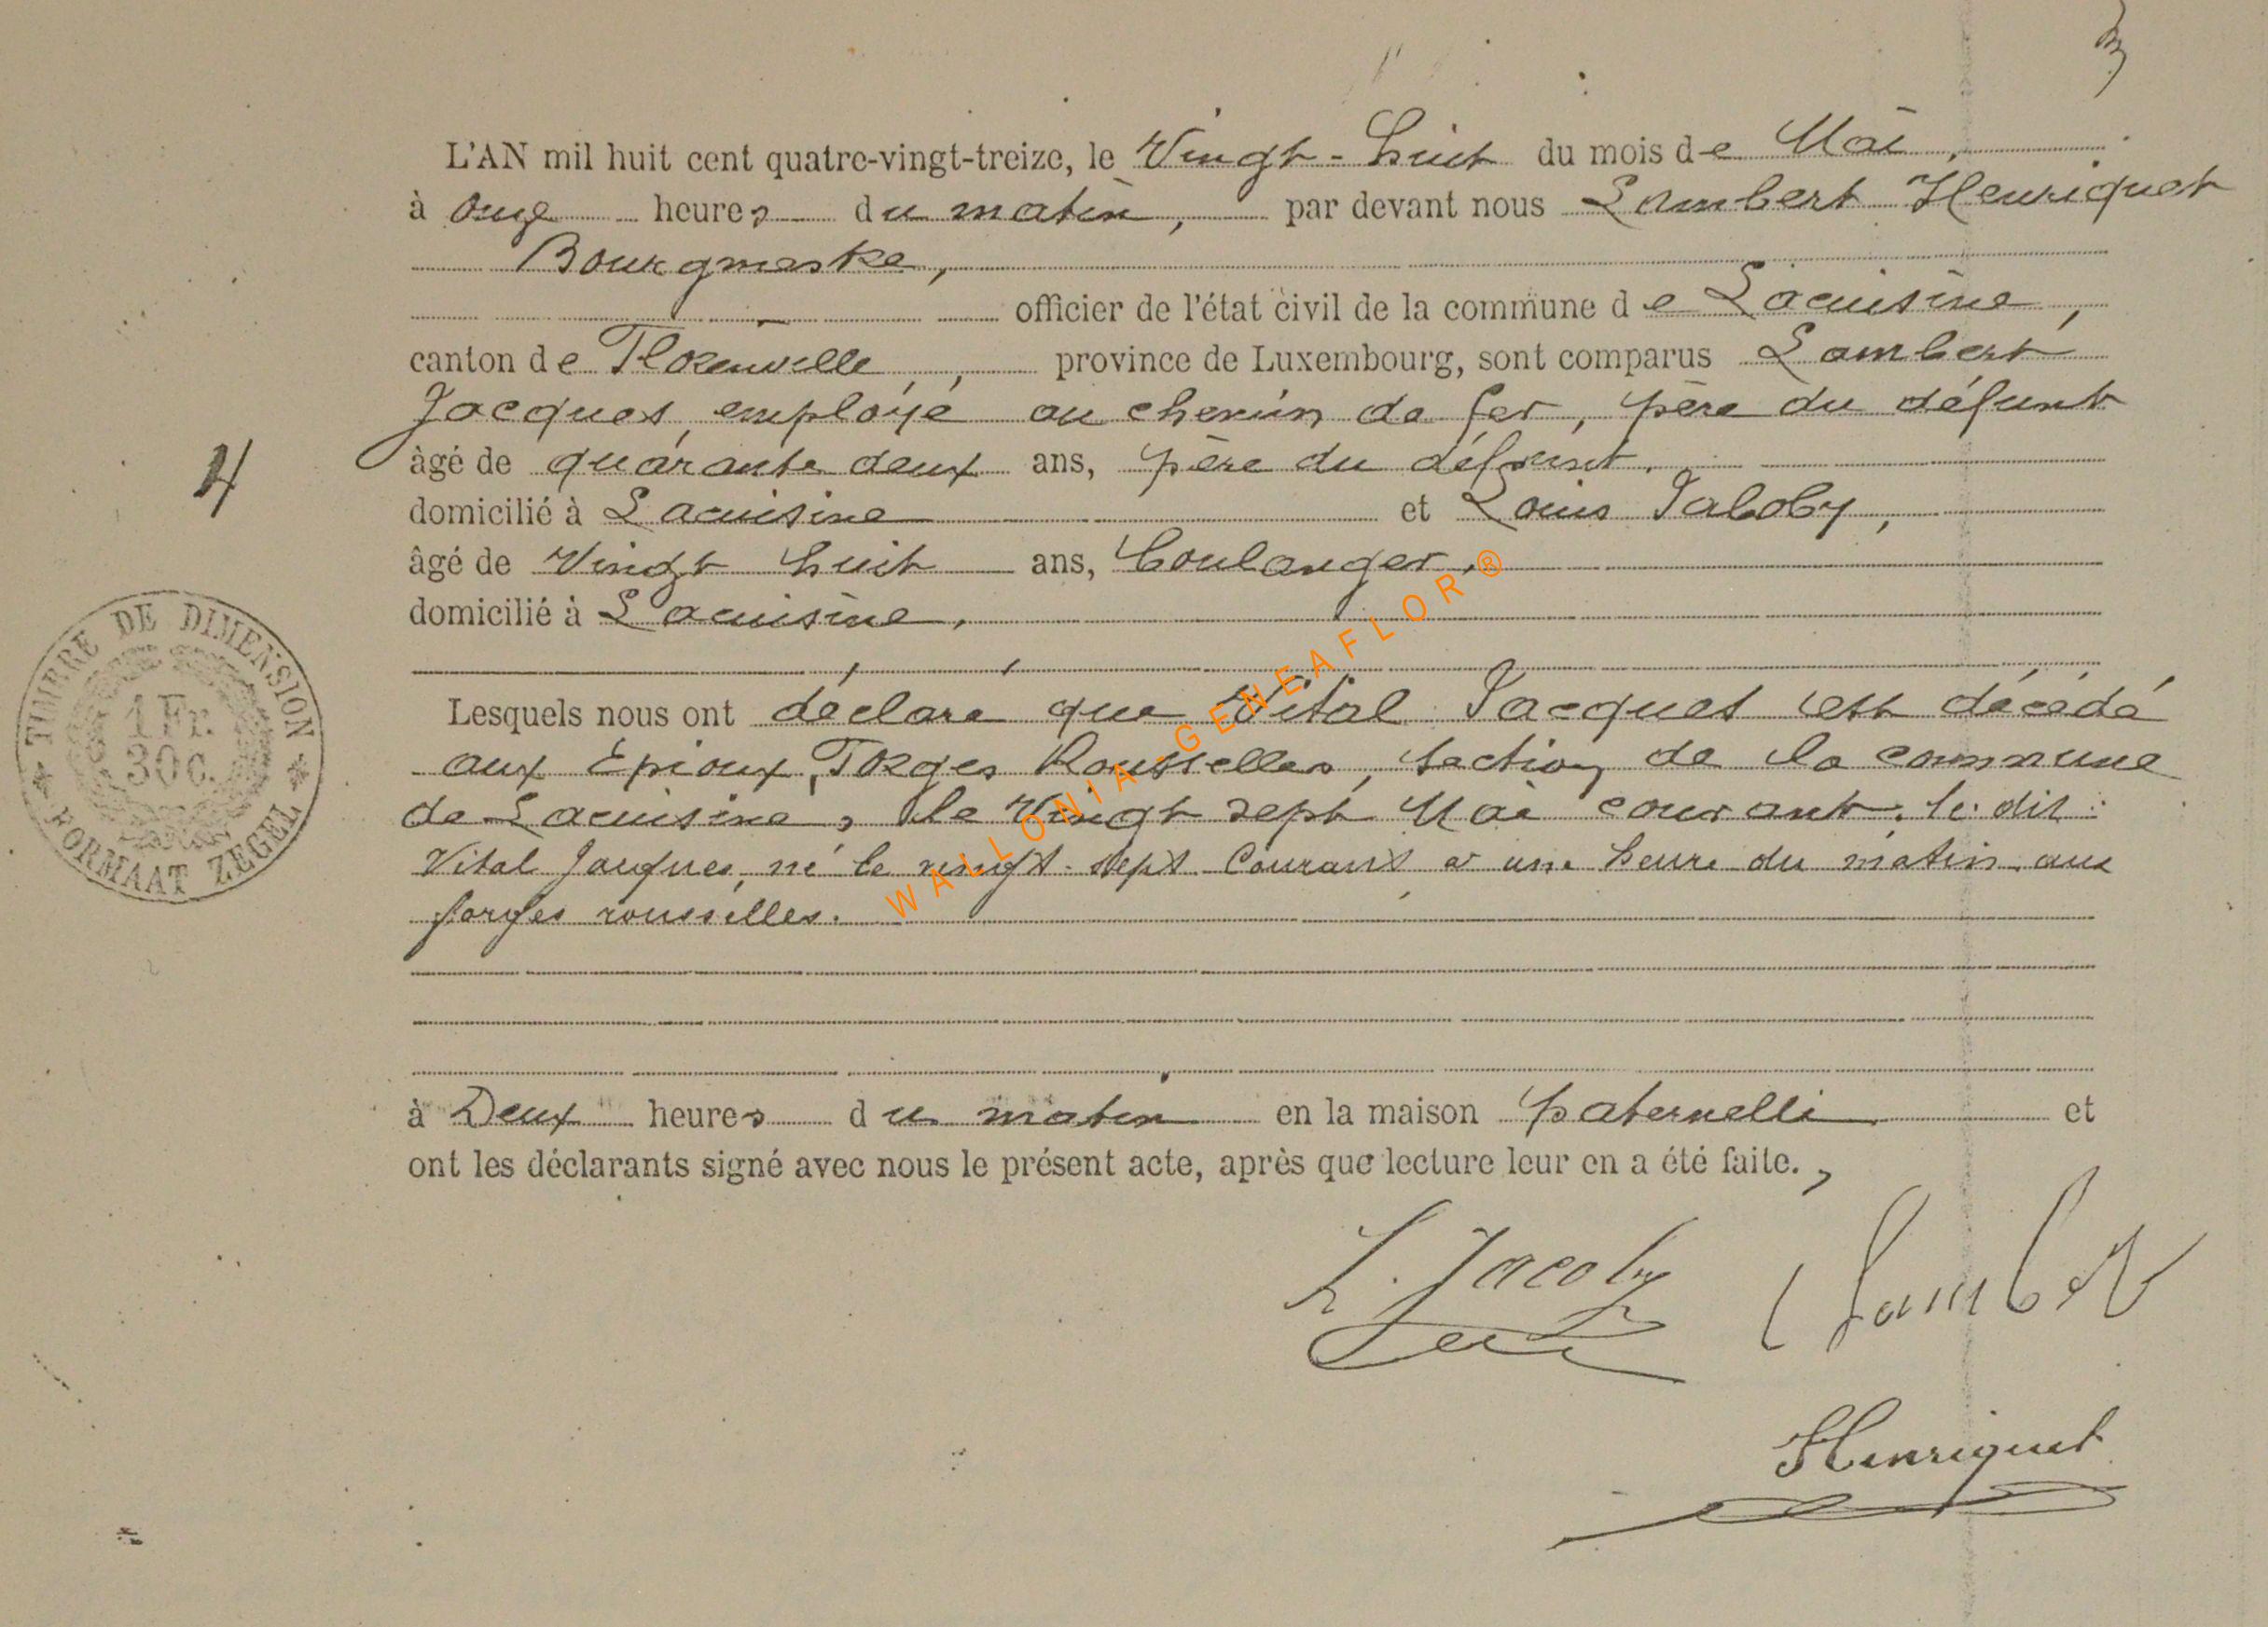 L'AN mil huit cent quatre-vingt-treize, le Vingt-huit du mois de Mai,
à onze heures du matin, par devant nous Lambert Henriquet
Bourgmestre,
officier de l'état civil de la commune de Lacuisine,
canton de Florenville, province de Luxembourg, sont comparus Lambert
Jacques, employé au chemin de fer, père du défunt
âgé de quarante deux ans, père du défunt,
domicilié à Lacuisine et Louis Jacoby,
âgé de Vingt huit ans, boulanger,
domicilié à Lacuisine,
Lesquels nous ont déclaré que Vital Jacques est décédé
aux Epioux, Forges Rousselles, section de la commune
de Lacuisine, le Vingt sept Mai courant. le dit
Vital Jacques, né le vingt-sept Courant à une heure du matin aux
forges rousselles.
à Deux heures du matin en la maison paternelle et
ont les déclarants signé avec nous le présent acte, après que lecture leur en a été faite.
L. Jacoby
Henriquet
4
TIMBRE DE DIMENSION
1 Fr.
30 c.
FORMAAT ZEGEL
WALLONIA-GENEAFLOR®